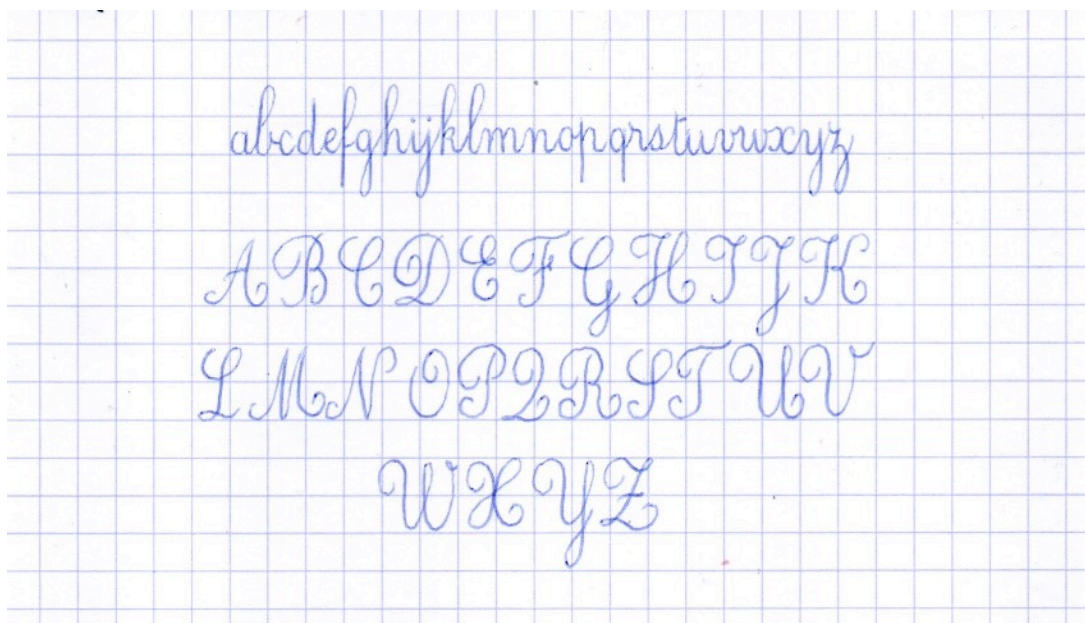 abcdefghijklmnopqrstuvwxyz
A B C D E F G H I J K
L M N O P Q R S T U V
W X Y Z